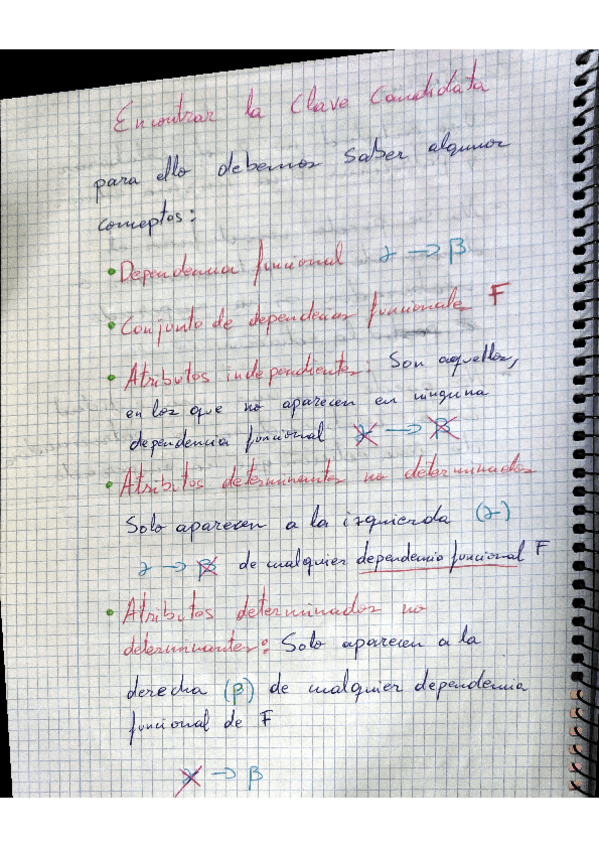 Encontrar la Clave Candidata
para ello debemos saber algunos
conceptos:
• Dependencia funcional γ → β
• Conjunto de dependencias funcionales F
• Atributos independientes: Son aquellos,
en los que no aparecen en ninguna
dependencia funcional γ → β
• Atributos determinantes no determinados
Solo aparecen a la izquierda (γ)
γ → β de cualquier dependencia funcional F
• Atributos determinados no
determinantes: Solo aparecen a la
derecha (β) de cualquier dependencia
funcional de F
γ → β